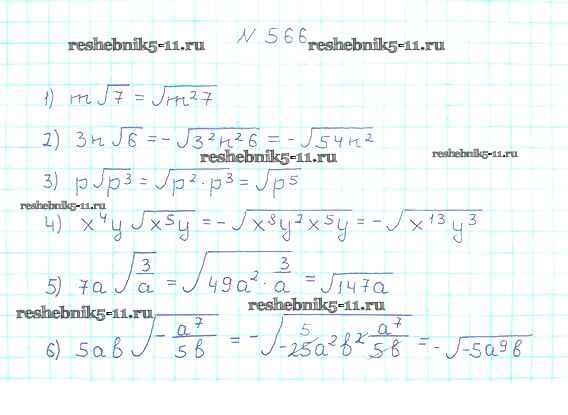 N 566
reshebnik5-11.ru reshebnik5-11.ru
1) m√7 = √m²7
2) 3n√6 = -√3²n²6 = -√54n²
reshebnik5-11.ru reshebnik5-11.ru
3) p√p³ = √p²·p³ = √p⁵
reshebnik5-11.ru
4) x⁴y√x⁵y = -√x⁸y²x⁵y = -√x¹³y³
5) 7a√(3/a) = √(49a²·3/a) = √147a
reshebnik5-11.ru reshebnik5-11.ru
6) 5ab√(-a⁷/5b) = -√(-25a²b² a⁷/5b) 5 = -√-5a⁹b